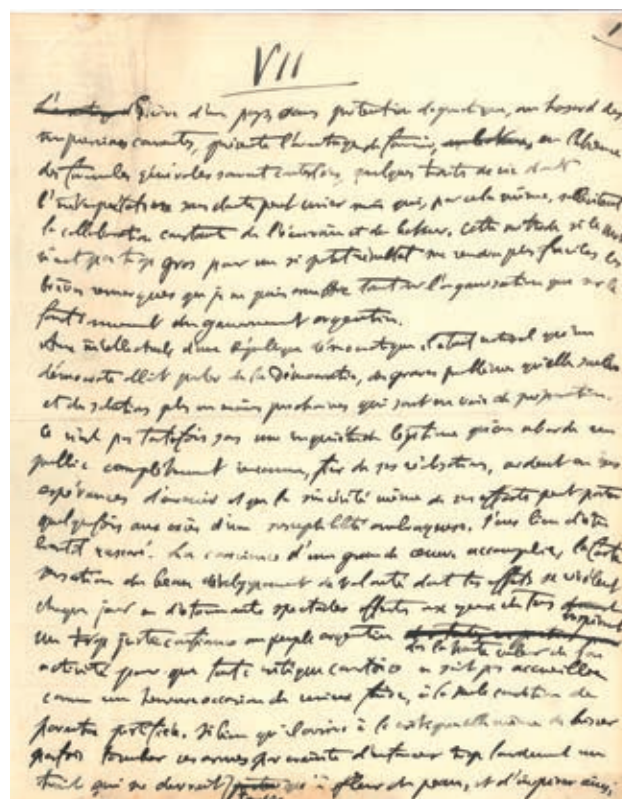 1
VII
L'avantage d'écrire d'un pays sans prétention dogmatique, au hasard des
impressions courantes, présente l'avantage de fournir, en l'absence
des formules générales savantes, quelques traits de vie dont
l'interprétation sans doute peut varier mais qui, par cela même, sollicitent
la collaboration constante de l'écrivain et du lecteur. Cette méthode, si le mot
n'est pas trop gros pour un si petit résultat me rendra plus faciles les
brèves remarques que je puis tant sur l'organisation que sur le
fonctionnement du gouvernement argentin.
Aux intellectuels d'une République démocratique, il était naturel qu'un
démocrate allât parler de la Démocratie, des graves problèmes qu'elle soulève
et des solutions plus ou moins prochaines qui sont en voie de préparation.
Ce n'est pas toutefois sans une inquiétude légitime qu'on aborde un
public complètement inconnu, fier de sa civilisation, ardent en ses
espérances d'avenir et que la sincérité même de ses efforts peut porter
quelquefois aux excès d'une susceptibilité ombrageuse. J'eus lieu d'être
bientôt rassuré. La conscience d'une grande œuvre accomplie, la forte
sensation du beau développement de volonté dont les effets se révèlent
chaque jour en d'étonnants spectacles offerts aux yeux de tous inspirent
une trop juste confiance au peuple argentin dans la haute valeur de son
activité pour que toute critique courtoise ne soit pas accueillie
comme une heureuse occasion de mieux faire, à la seule condition de
paraître justifiée. Si bien qu'il arrive à la critique elle-même de laisser
parfois tomber ses armes par crainte d'enfoncer trop lourdement un
trait qui ne devrait qu'à fleur de peau, et d'inspirer ainsi,